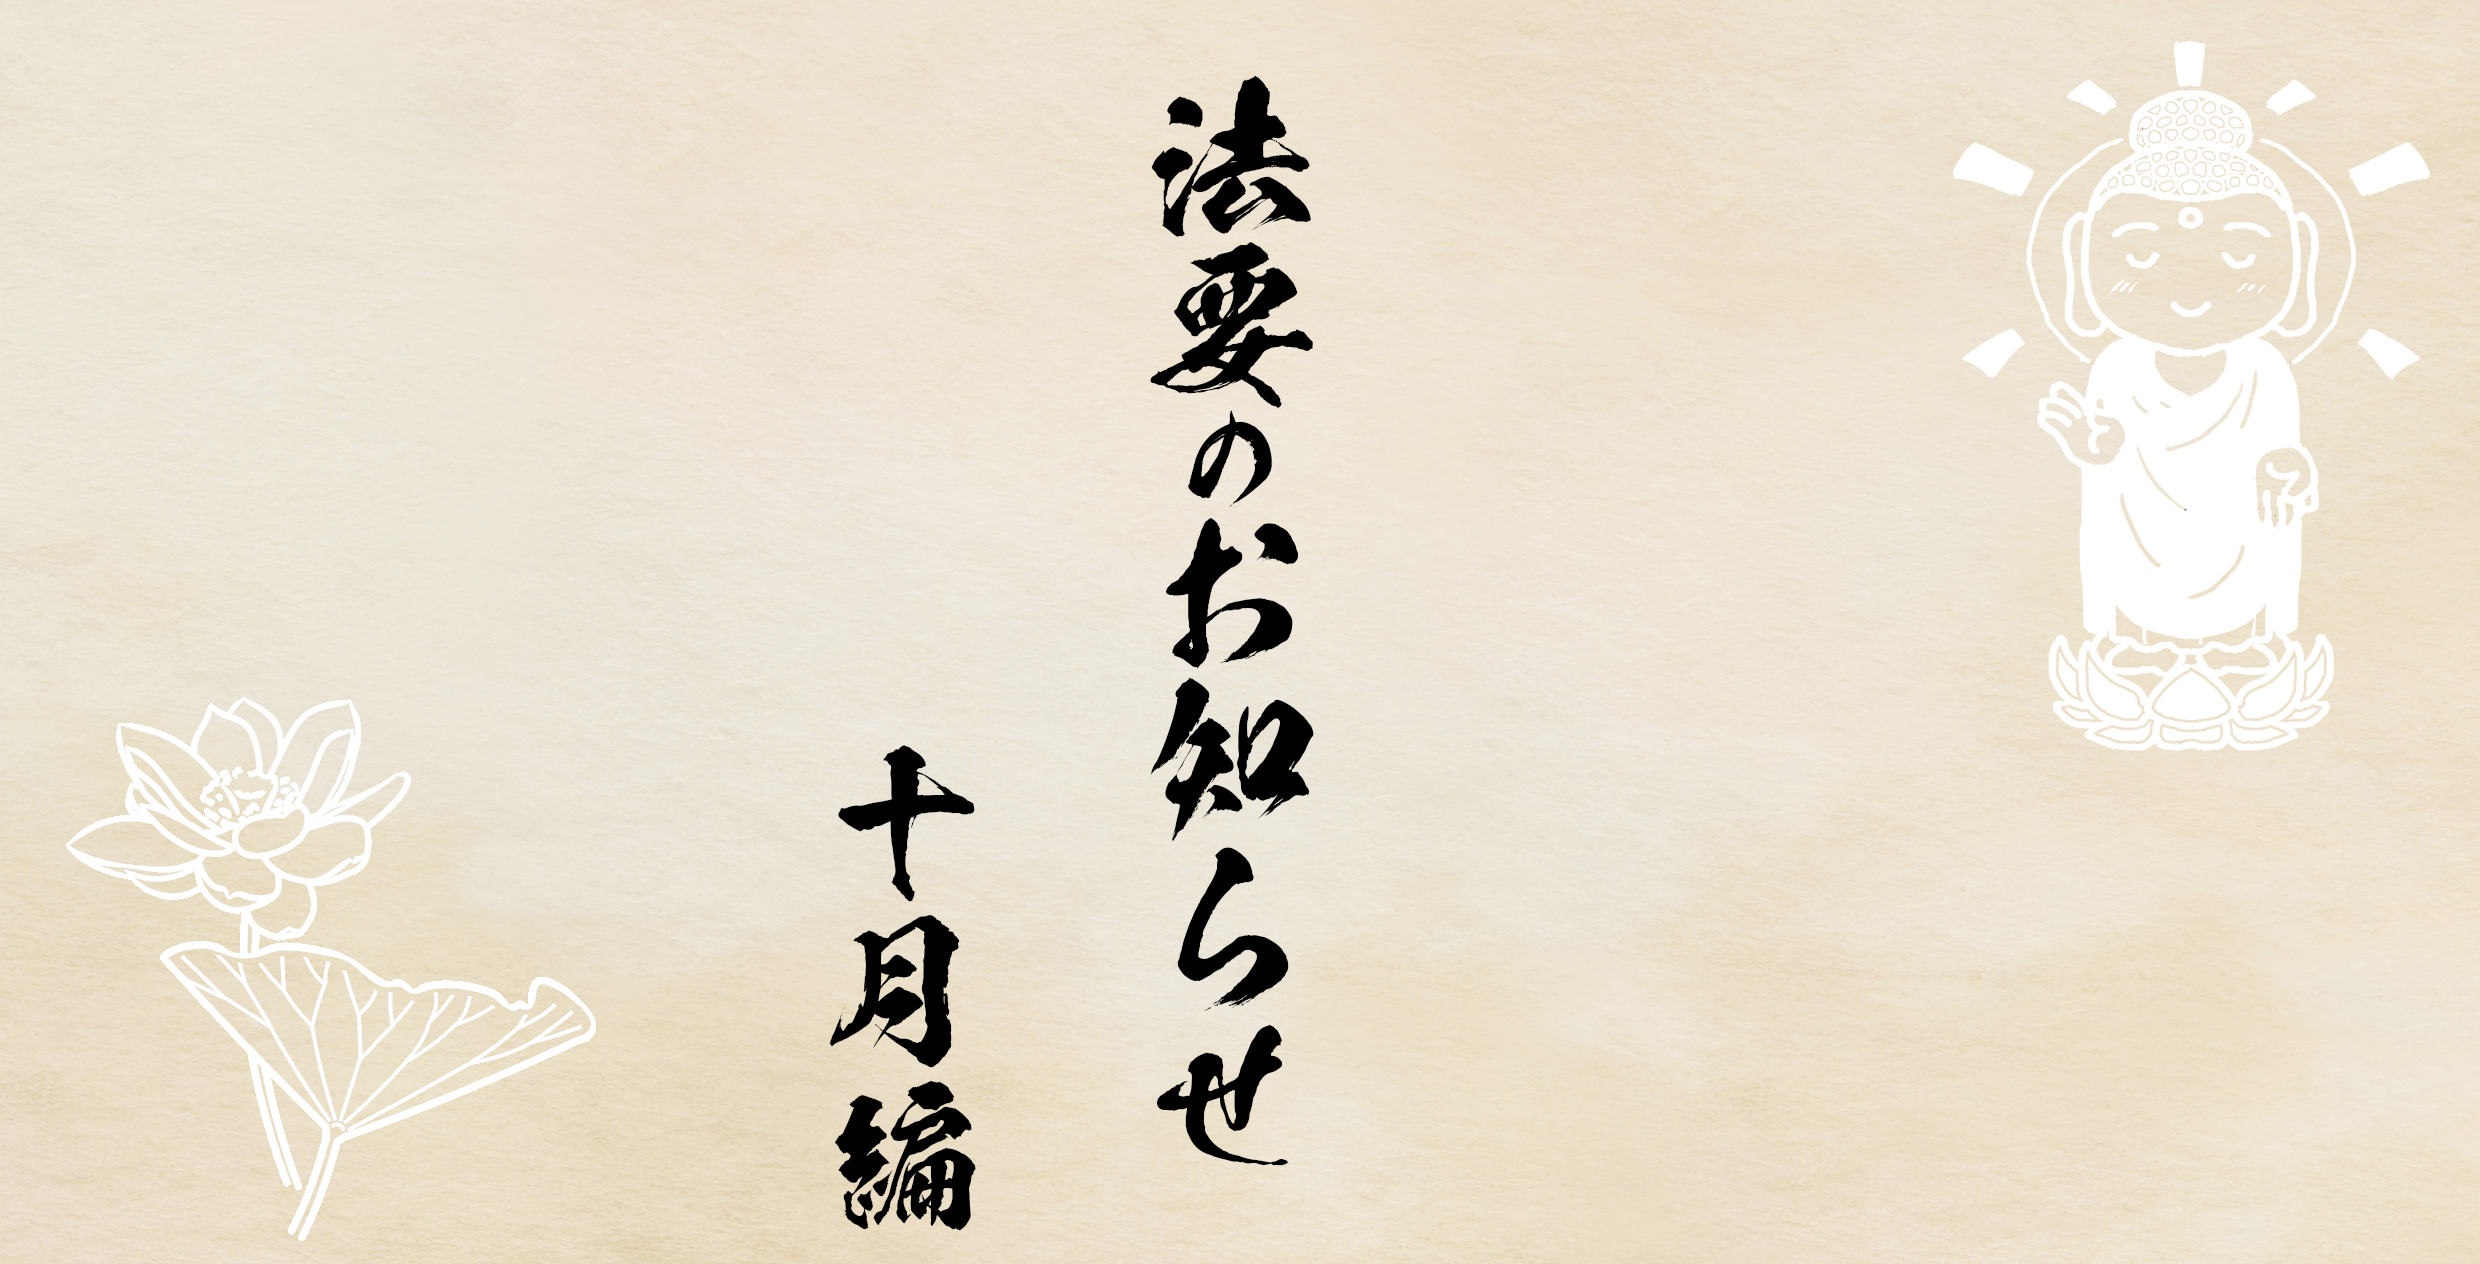 法要のお知らせ
十月編